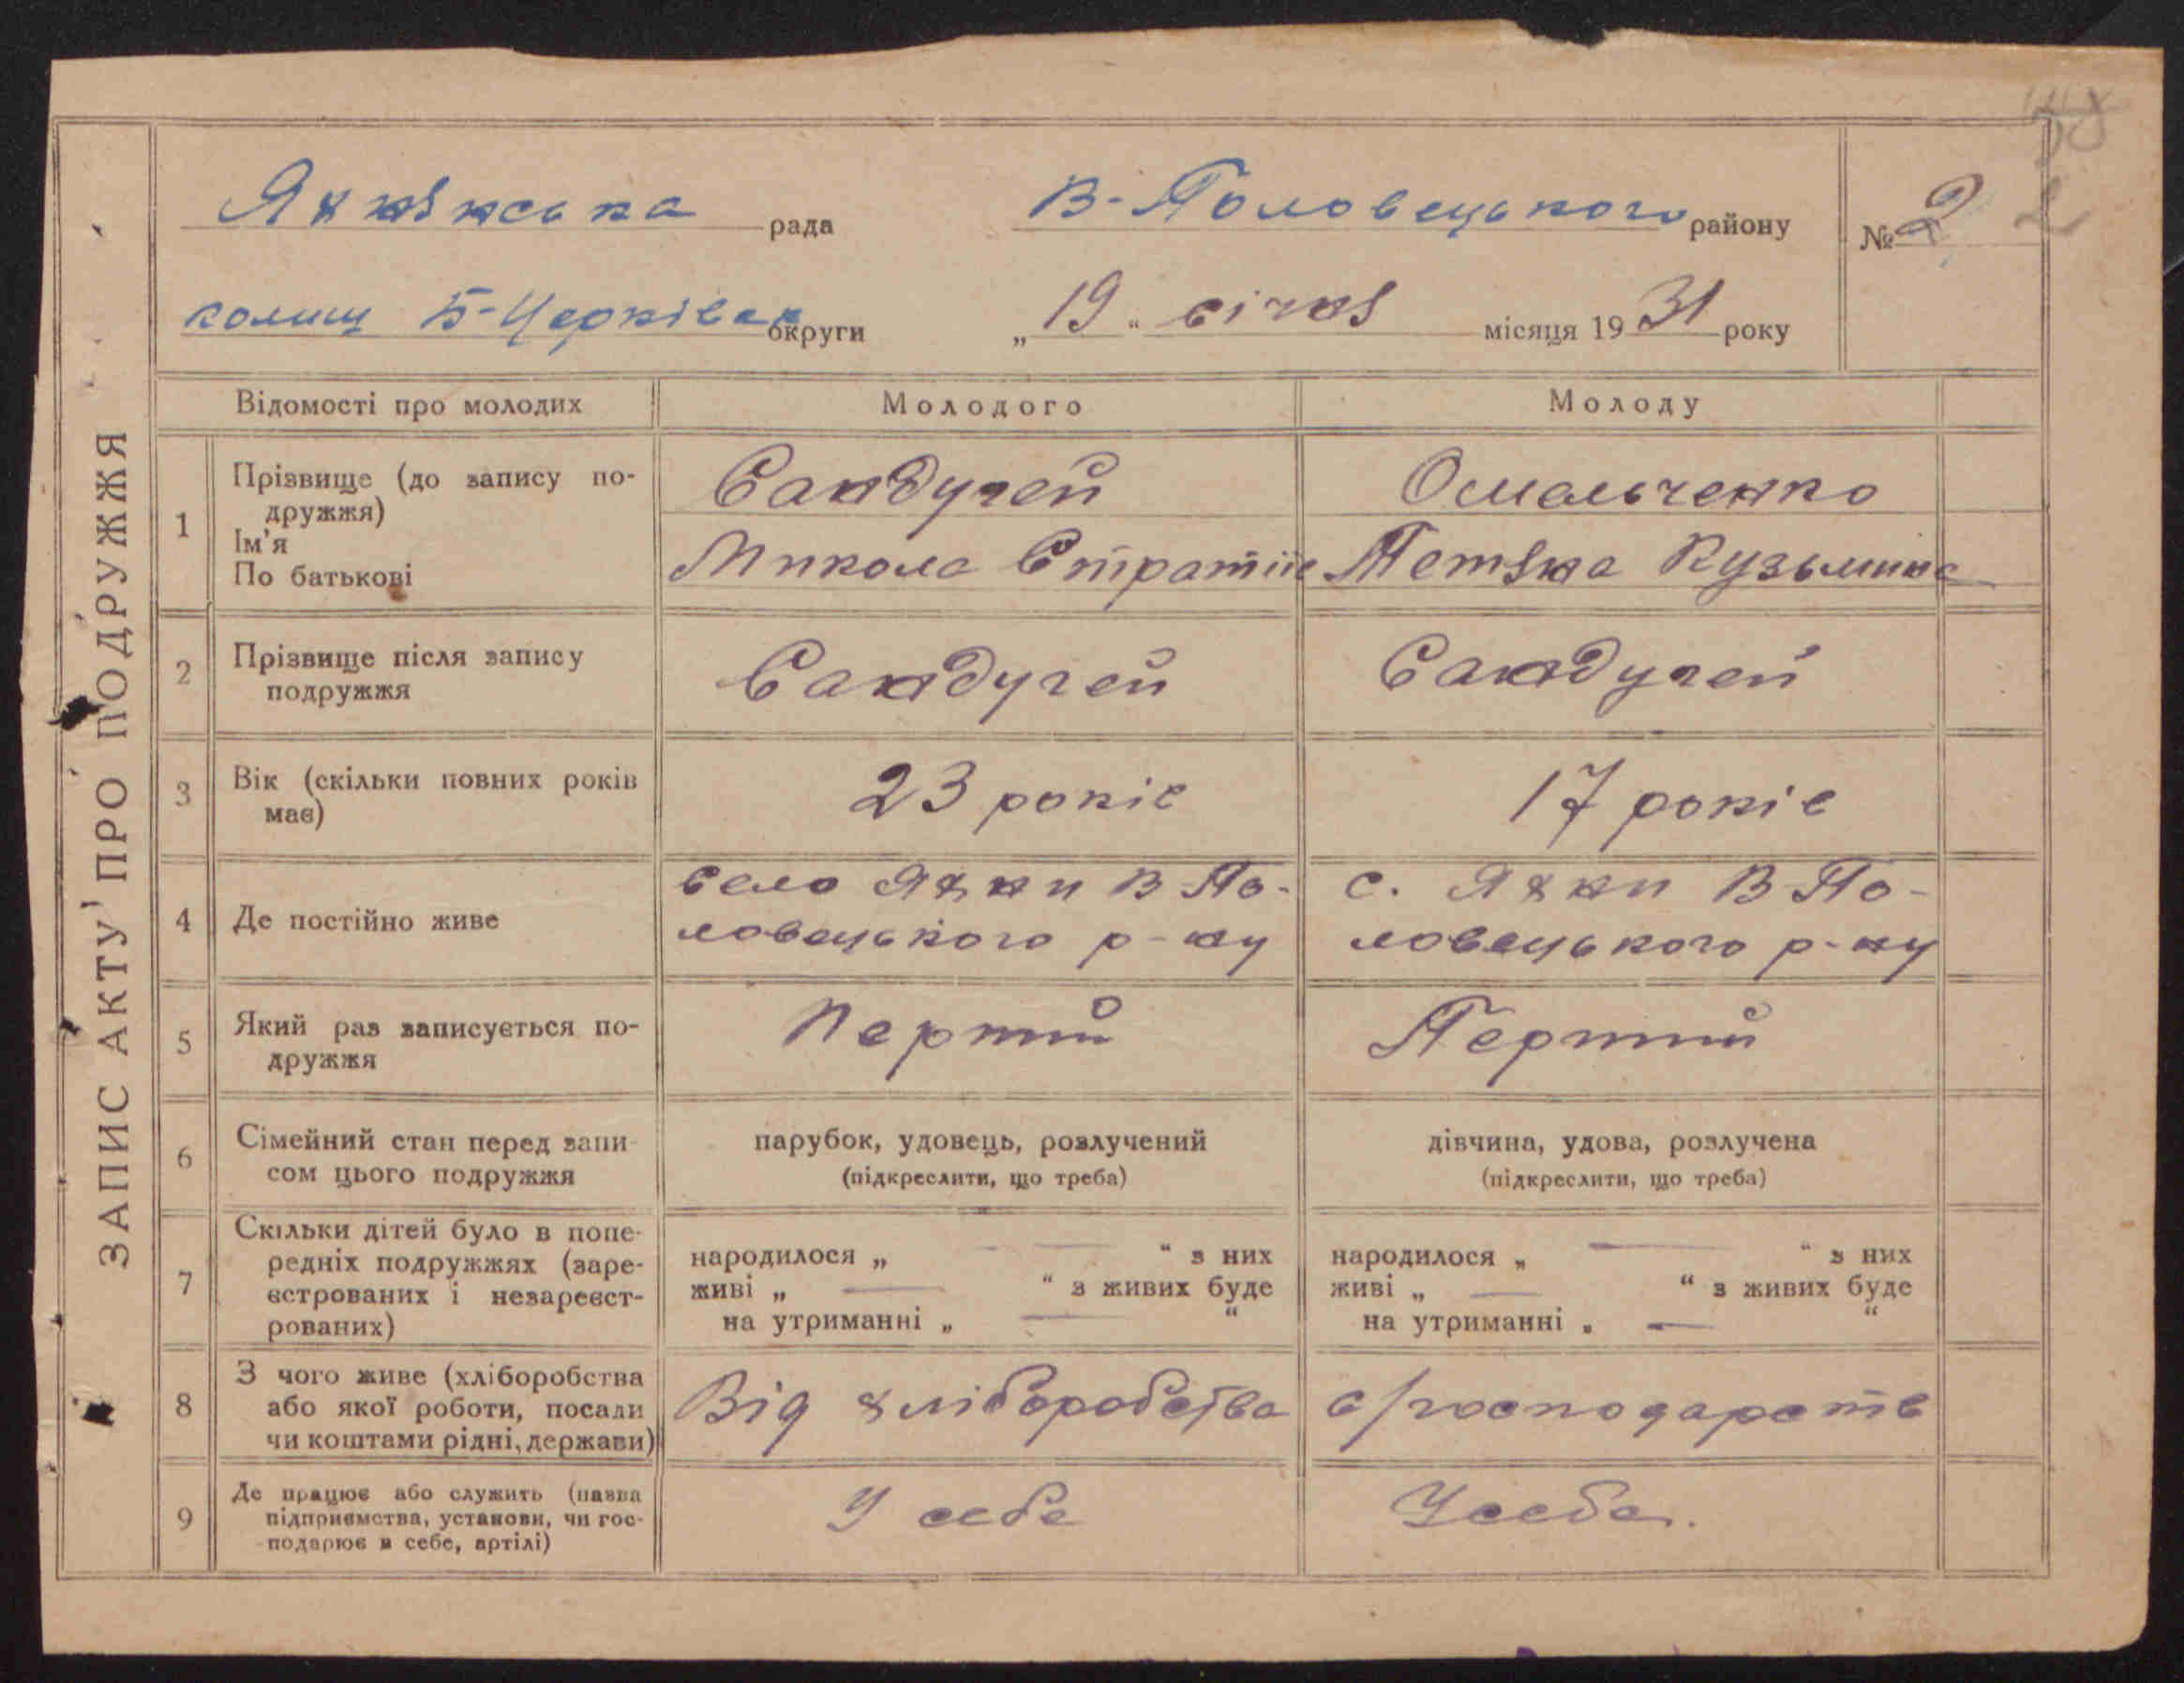 ЗАПИС АКТУ ПРО ПОДРУЖЖЯ
Яхнянська рада В-Половецького району № 2
колиш Б-Церківск округи „19“ січня місяця 1931 року
Відомості про молодих Молодого Молоду
1 Прізвище (до запису по-
дружжя)
Ім'я
По батькові
Сандугей
Микола Стратіїв
Омельченко
Тетяна Кузьмина
2 Прізвище після запису
подружжя
Сандугей
Сандугей
3 Вік (скільки повних років
має)
23 років
17 років
4 Де постійно живе
село Яхни В-По-
ловецького р-ну
с. Яхни В-По-
ловецького р-ну
5 Який раз записується по-
дружжя
Перший
Перший
6 Сімейний стан перед запи-
сом цього подружжя
парубок, удовець, розлучений
(підкреслити, що треба)
дівчина, удова, розлучена
(підкреслити, що треба)
7 Скільки дітей було в попе-
редніх подружжях (заре-
єстрованих і незареєст-
рованих)
народилося „ — “ з них
живі „ — “ з живих буде
на утриманні „ — “
народилося „ — “ з них
живі „ — “ з живих буде
на утриманні „ — “
8 З чого живе (хліборобства
або якої роботи, посади
чи коштами рідні, держави)
Від хліборобства
с/господарств
9 Де працює або служить (назва
підприємства, установи, чи гос-
подарює в себе, артілі)
У себе
У себе.